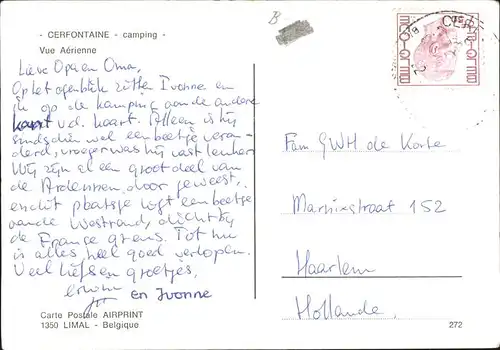 - CERFONTAINE - camping -
Vue Aérienne
B
Lieve Opa en Oma,
Op het ogenblik zitten Ivonne en
ik op de kamping aan de andere
kant v.d. kaart. Alleen is hij
sindsdien wel een beetje veran-
derd, vroeger was hij vast leuker
Wij zijn al een groot deel van
de Ardennen door geweest,
en dit plaatsje ligt een beetje
aan de Westrand, dichtbij
de Franse grens. Tot nu
is alles heel goed verlopen.
Veel liefs en groetjes,
en Ivonne
Fam GWH de Korte
Marnixstraat 152
Haarlem
Hollande.
Carte Postale AIRPRINT
1350 LIMAL - Belgique
272